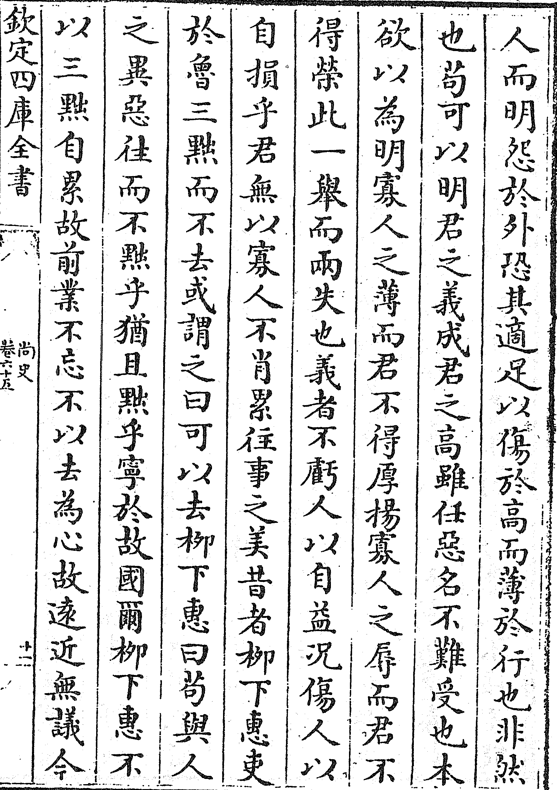 人而明怨於外恐其適足以傷於高而薄於行也非然
也苟可以明君之義成君之高雖任惡名不難受也本
欲以為明寡人之薄而君不得厚揚寡人之辱而君不
得榮此一舉而兩失也義者不虧人以自益況傷人以
自損乎君無以寡人不肖累往事之美昔者柳下惠吏
於魯三黜而不去或謂之曰可以去柳下惠曰茍與人
之異惡往而不黜乎猶且黜乎寧於故國爾柳下惠不
以三黜自累故前業不忘不以去為心故遠近無議今
欽定四庫全書
尚史
卷六十五
十一